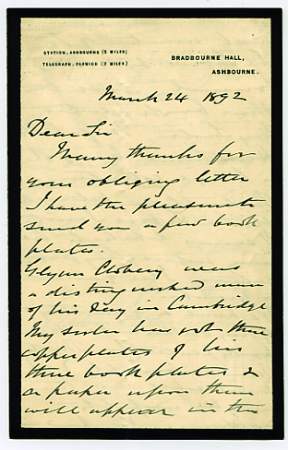 STATION, ASHBOURNE (5 MILES)
TELEGRAPH, PARWICH (2 MILES)
BRADBOURNE HALL,
ASHBOURNE.
March 24 1892
Dear Sir
Many thanks for
your obliging letter
I have the pleasure to
send you a few book
plates.
Glynn Clobery was
a distinguished man
of his day in Cambridge
My sister has got the
copperplates of his
three book plates &
a paper upon them
will appear in the